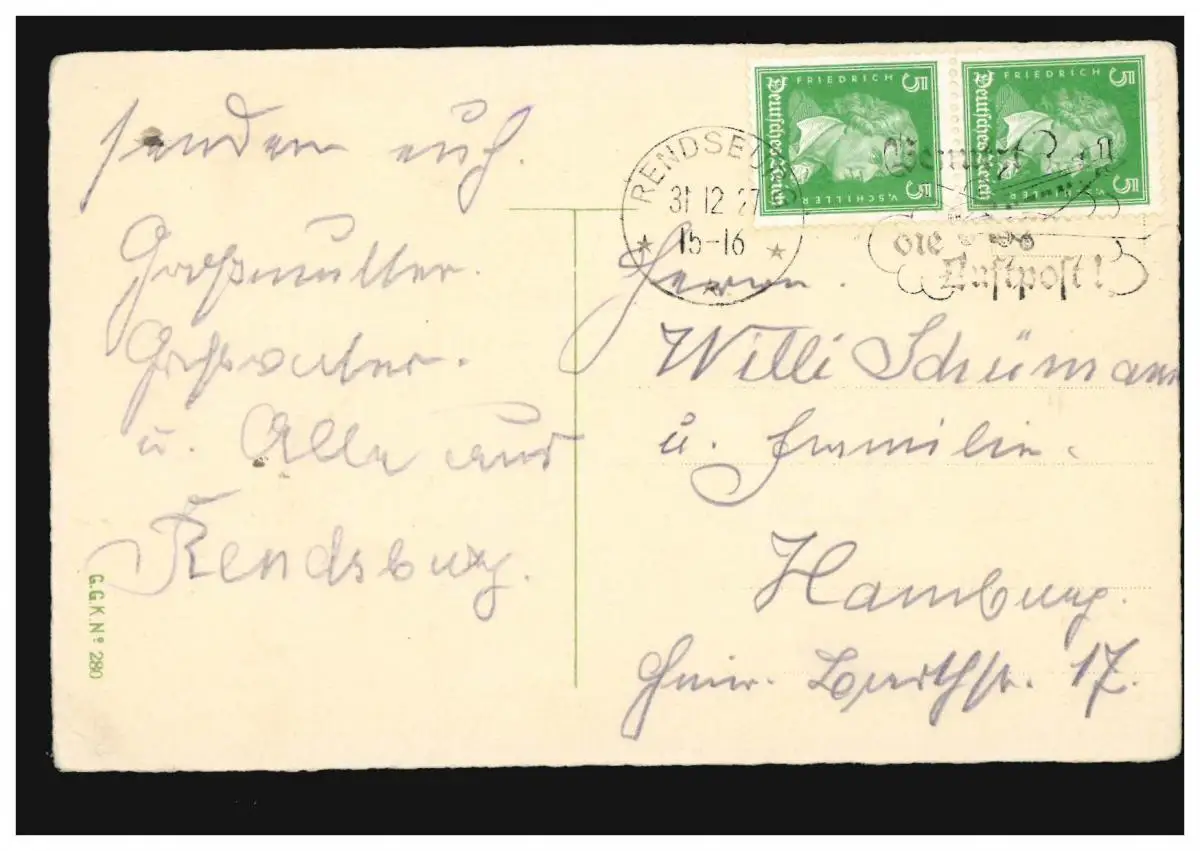 senden euch.
Großmutter.
Großvater.
u. Alle aus
Rendsburg.
G.G.K.Nº 280
FRIEDRICH
5 5
V. SCHILLER
Deutsches Reich
FRIEDRICH
5 5
V. SCHILLER
Deutsches Reich
RENDSBU
31 12 27
15-16
Benutzt
die
Luftpost!
Herrn.
Willi Schümann
u. Familie.
Hamburg.
Heinr. Barthstr. 17.